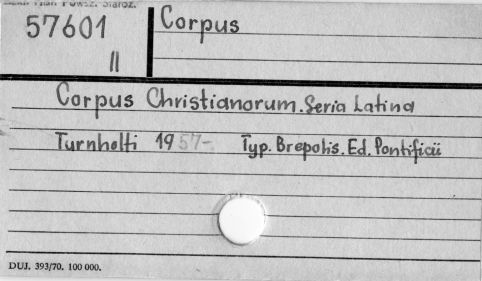 57601
II
Corpus
Corpus Christianorum. Seria Latina
Turnholti 1957- Typ. Brepolis. Ed. Pontificii
DUJ. 393/70. 100 000.